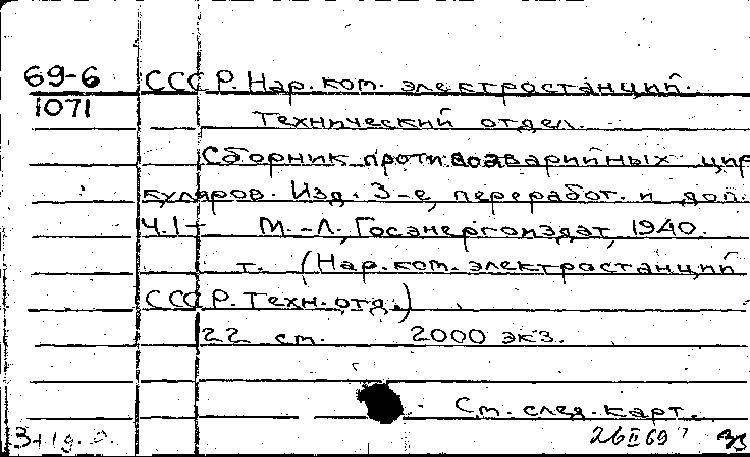 69-6 СССР. Нар. ком. электростанций.
1071 Технический отдел.
Сборник противоаварийных цир
куляров. Изд. 3-е, переработ. и доп.
Ч.1- М.-Л., Госэнергоиздат, 1940.
т. (Нар. ком. электростанций
СССР. Техн. отд.)
22 см. 2000 экз.
См. след. карт.
26 II 69